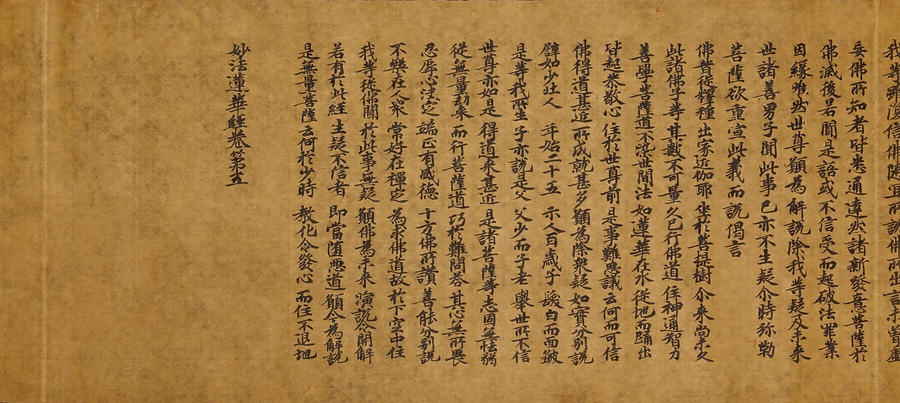 我等雖復信佛隨宜所說佛所出言未曾虛
妄佛所知者皆悉通達然諸新發意菩薩於
佛滅後若聞是語或不信受而起破法罪業
因緣唯然世尊願為解說除我等疑及未來
世諸善男子聞此事已亦不生疑尒時弥勒
菩薩欲重宣此義而說偈言
佛昔從釋種 出家近伽耶 坐於菩提樹 尒來尚未久
此諸佛子等 其數不可量 久已行佛道 住神通智力
善學菩薩道 不染世間法 如蓮華在水 從地而踊出
皆起恭敬心 住於世尊前 是事難思議 云何而可信
佛得道甚近 所成就甚多 願為除衆疑 如實分別說
譬如少壯人 年始二十五 示人百歲子 髮白而面皺
是等我所生 子亦說是父 父少而子老 舉世所不信
世尊亦如是 得道來甚近 是諸菩薩等 志固無怯弱
從無量劫來 而行菩薩道 巧於難問答 其心無所畏
忍辱心決定 端正有威德 十方佛所讚 善能分別說
不樂在人衆 常好在禪定 為求佛道故 於下空中住
我等從佛聞 於此事無疑 願佛為未來 演說令開解
若有於此經 生疑不信者 即當墮惡道 願今為解說
是無量菩薩 云何於少時 教化令發心 而住不退地
妙法蓮華經卷第五